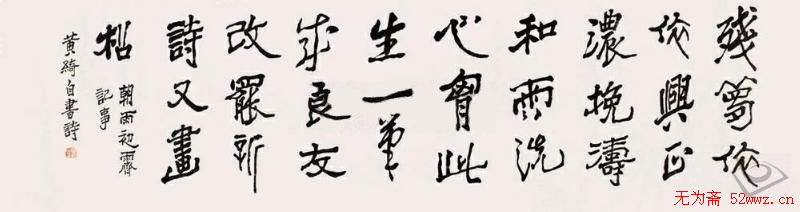 殘夢依
依興正
濃挽濤
和雨洗
心胷此
生一筆
成良友
改罷新
詩又畫
松
朝雨初霽
記事
黃綺自書詩
无为斋 52wwz.cn